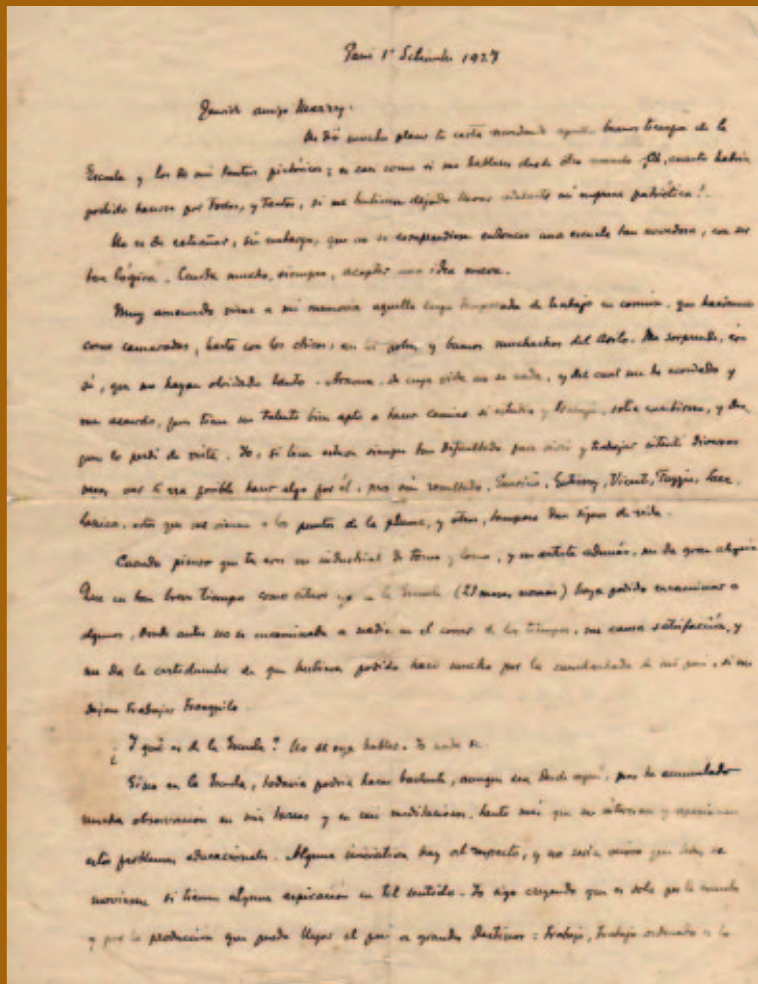 Paris 1º Setiembre 1927
Querido amigo
Me dió mucho placer tu carta recordando aquellos buenos tiempos de la
Escuela y los de mis tanteos pictóricos; es casi como si me hablases desde otro mundo. ¡Oh, cuanto habría
podido hacerse por todos, y tantos, si me hubiesen dejado llevar adelante mi empresa patriótica!..
No es de extrañar, sin embargo, que no se comprendiese entonces una escuela tan novedosa, con ser
tan lógica. Cuesta mucho, siempre, aceptar una idea nueva.
Muy amenudo viene a mi memoria aquella larga temporada de trabajo en común, que hacíamos
como camaradas, hasta con los chicos, en los pobres y buenos muchachos del Asilo. Me sorprende, eso
sí, que me hayan olvidado tanto. de cuya vida no se nada, y del cual me he acordado y
me acuerdo, pues tiene un talento bien apto a hacer camino si estudia y trabaja, solía escribirme, y
pues lo perdí de vista. Yo, si bien
ver si era posible hacer algo por él, pero sin resultado. Vicente,
estos que me vienen a los puntos de la pluma, y otros, tampoco dan signos de vida.
Cuando pienso que tu eres un industrial de tomo y lomo, y un artista además, me da gran alegría
Que en tan breve tiempo como estuve yo en la Escuela (21 meses, nomás) haya podido encaminar a
algunos, donde antes no se encaminaba a nadie en el correr de los tiempos, me causa satisfacción, y
me da la certidumbre de que hubiera podido hacer mucho por la muchachada de mi país, si me
dejan trabajar tranquilo.
¿Y qué es de la Escuela? No se oye hablar. Yo nada se.
Si no en la Escuela, todavía podría hacer bastante, aunque sea desde aquí, pues he acumulado
mucha observación en mis tareas y en mis meditaciones, tanto más que me interesan y apasionan
estos problemas educacionales. Alguna iniciativa hay al respecto, y no sería malo que se
moviesen si tienen alguna aspiración en tal sentido. Yo sigo creyendo que es solo por la escuela
y por la producción que puede llegar el país a grandes destinos: trabajo, trabajo ordenado a la